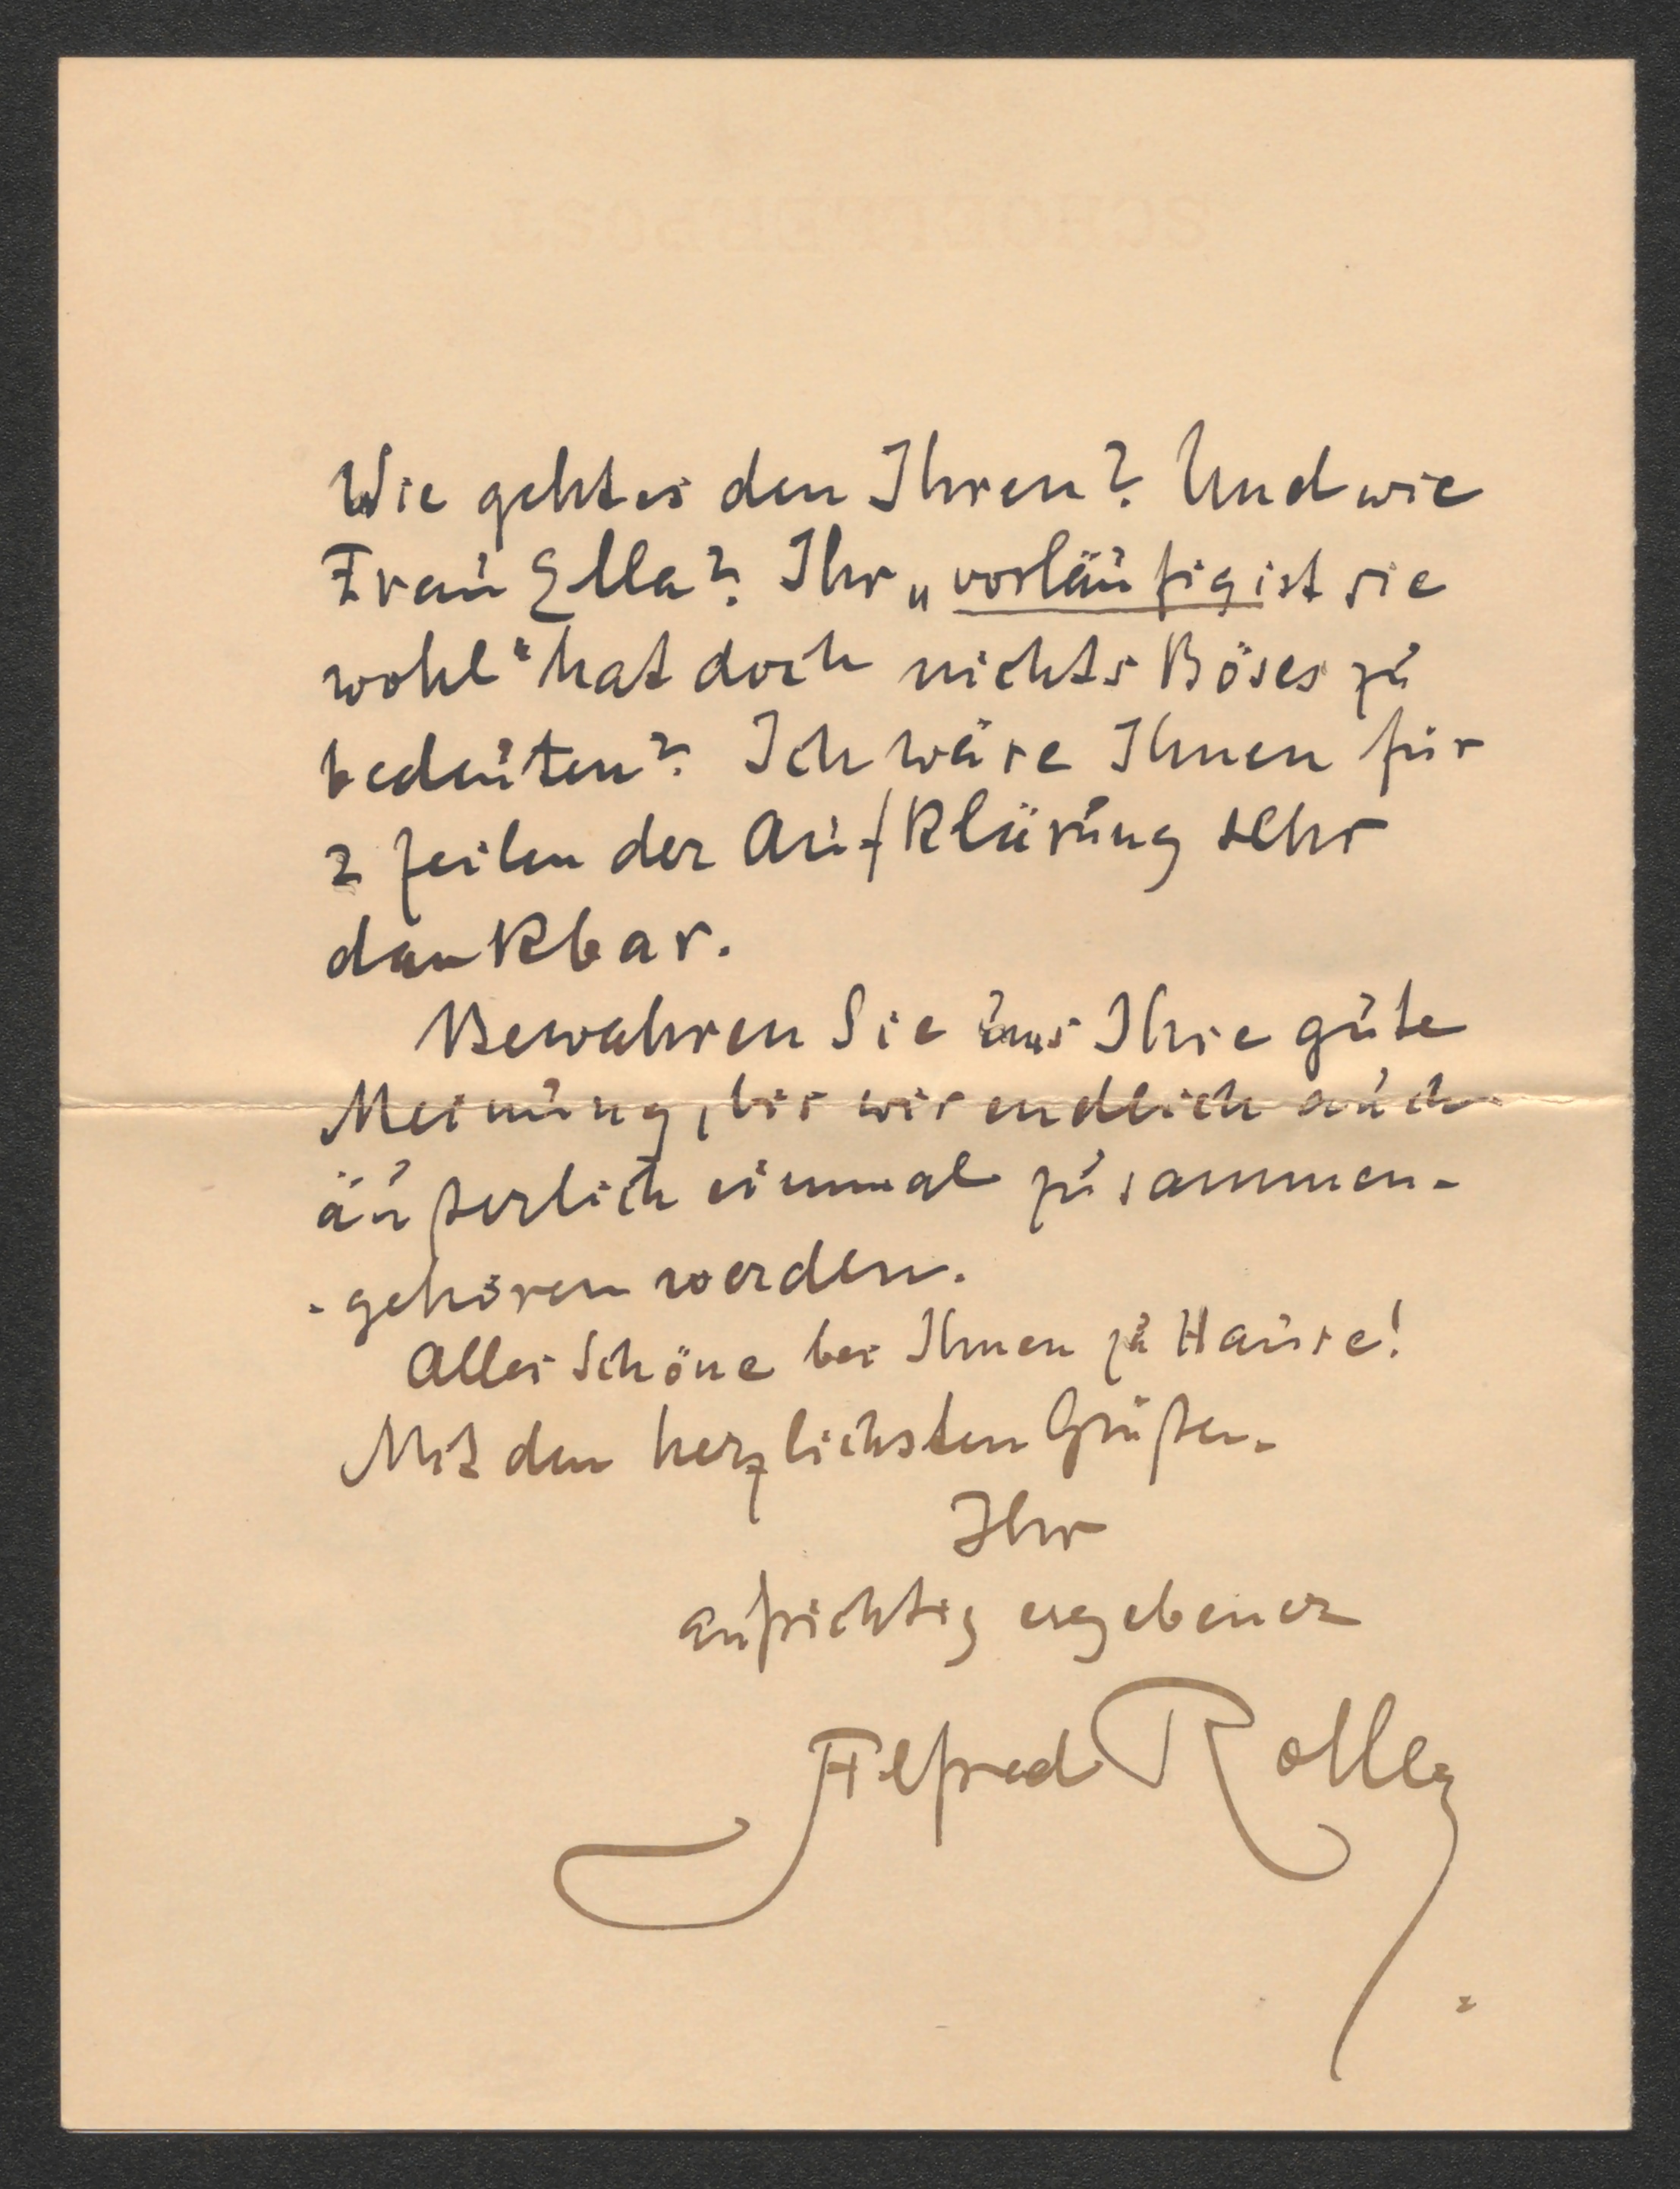 Wie geht es den Ihren? Und wie
Frau Ella? Ihr „vorläufig ist sie
wohl“ hat doch nichts Böses zu
bedeuten? Ich wäre Ihnen für
2 Zeilen der Aufklärung sehr
dankbar.
Bewahren Sie uns Ihre gute
Meinung, bis wir endlich auch
äußerlich einmal zusammen-
-gehören werden.
Alles Schöne bei Ihnen zu Hause!
Mit den herzlichsten Grüßen.
Ihr
aufrichtig ergebener
Alfred Roller